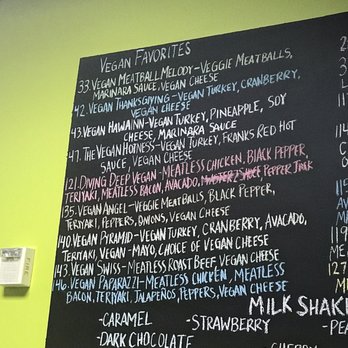 VEGAN FAVORITES
33. VEGAN MEATBALL MELODY - VEGGIE MEATBALLS,
MARINARA SAUCE, VEGAN CHEESE
42. VEGAN THANKSGIVING - VEGAN TURKEY, CRANBERRY,
VEGAN CHEESE
43. VEGAN HAWAIIAN - VEGAN TURKEY, PINEAPPLE, SOY
CHEESE, MARINARA SAUCE
47. THE VEGAN HOTNESS - VEGAN TURKEY, FRANKS RED HOT
SAUCE, VEGAN CHEESE
121. DIVING DEEP VEGAN - MEATLESS CHICKEN, BLACK PEPPER,
TERIYAKI, MEATLESS BACON, AVOCADO, PEPPER JACK
135. VEGAN ANGEL - VEGGIE MEATBALLS, BLACK PEPPER,
TERIYAKI, PEPPERS, ONIONS, VEGAN CHEESE
140. VEGAN PYRAMID - VEGAN TURKEY, CRANBERRY, AVOCADO,
TERIYAKI, VEGAN - MAYO, CHOICE OF VEGAN CHEESE
143. VEGAN SWISS - MEATLESS ROAST BEEF, VEGAN CHEESE
146. VEGAN PAPARAZZI - MEATLESS CHICKEN, MEATLESS
BACON, TERIYAKI, JALAPEÑOS, PEPPERS, VEGAN CHEESE
MILK SHAK
- CARAMEL
- STRAWBERRY
- PEA
- DARK CHOCOLATE
CHERRY